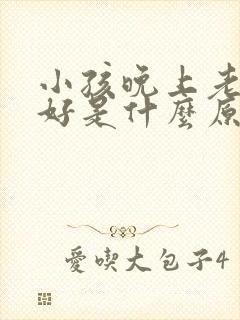 小孩晚上老
好是什麼原
愛喫大包子4